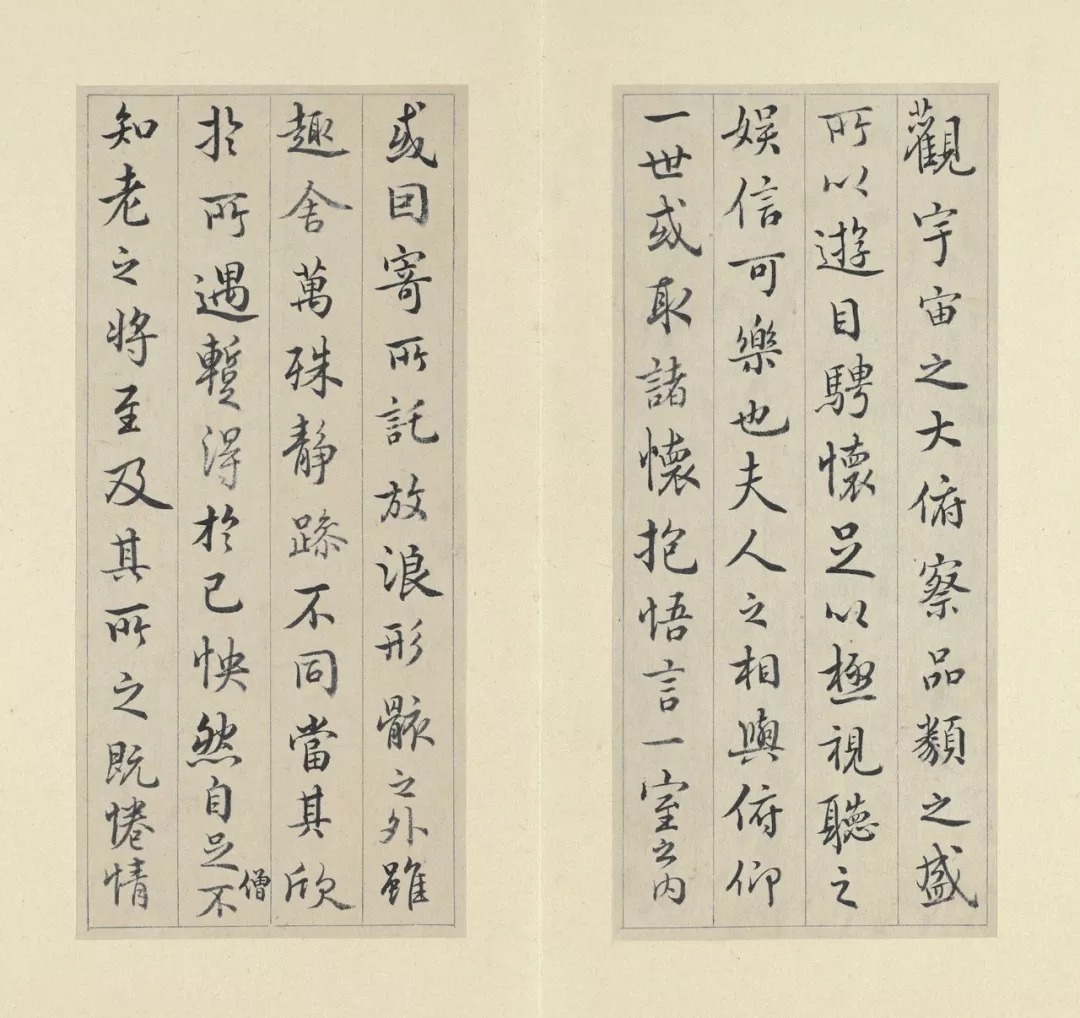 觀宇宙之大俯察品類之盛
所以遊目騁懷足以極視聽之
娛信可樂也夫人之相與俯仰
一世或取諸懷抱悟言一室之內
或因寄所託放浪形骸之外雖
趣舍萬殊靜躁不同當其欣
僧
於所遇暫得於己怏然自足不
知老之將至及其所之既惓情